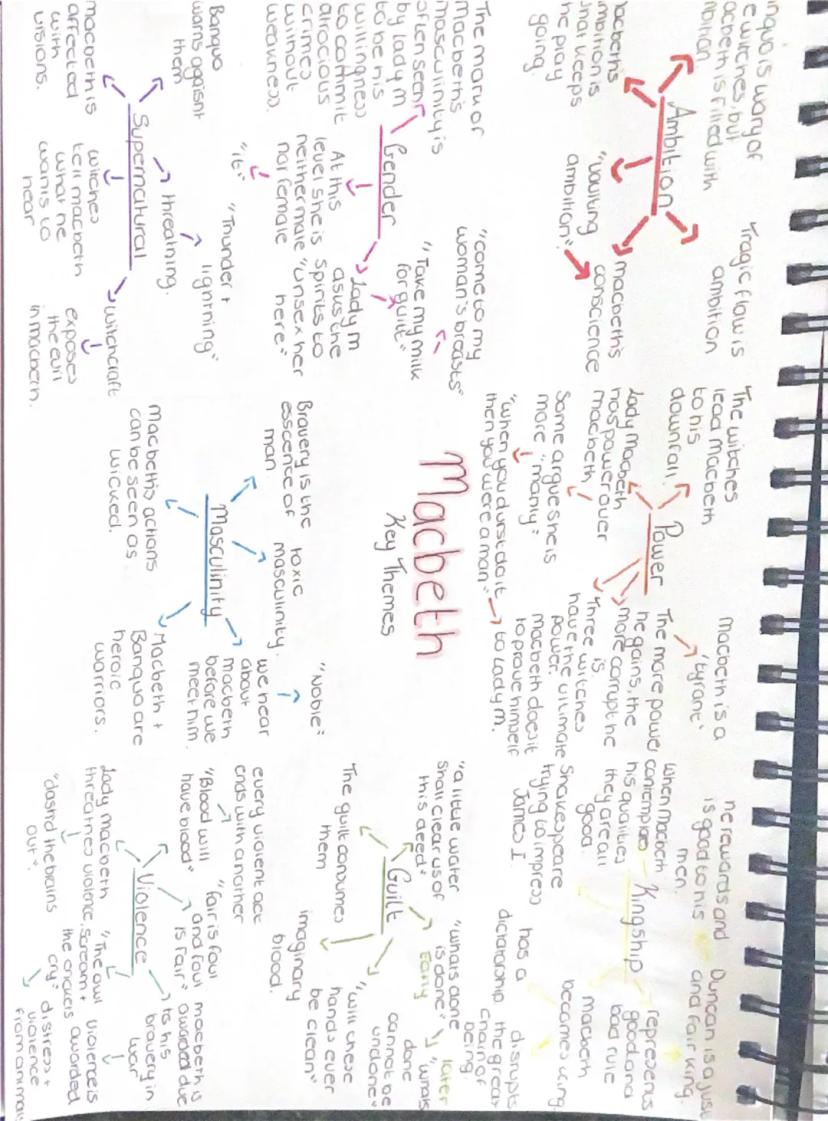 Macbeth
Key Themes
Banquo is wary of
the witches, but
macbeth is filled with
ambition
Tragic flaw is
ambition
Ambition
macbeth's
ambition is
what keeps
the play
going.
"vaulting
ambition"
macbeth's
conscience
The witches
lead Macbeth
to his
downfall.
Power
macbeth is a
'tyrant'
The more power
he gains, the
more corrupt he
is
Lady Macbeth
has power over
macbeth
Some argue she is
more "manly"
"when you durst do it
then you were a man"
to Lady m.
Three witches
have the ultimate
power.
macbeth does it
to prove himself
he rewards and
is good to his
men.
Duncan is a just
and fair king.
Kingship
When Macbeth
contemplates
his qualities
they are all
good.
represents
good and
bad rule
Shakespeare
trying to impress
James I.
macbeth
becomes king
has a
dictatorship
disrupts
the great
chain of
being.
The mark of
Macbeth's
masculinity is
often seen
by lady m
to be his
willingness
to commit
atrocious
crimes
without
weakness.
Gender
"come to my
woman's breasts"
"Take my milk
for guilt"
Lady m
asks the
spirits to
"unsex her
here"
At this
level she is
neither male
nor female
"it"
"a little water
shall clear us of
this deed"
Guilt
Early
"whats done
is done"
later
"whats
done
cannot be
undone"
The guilt consumes
them
imaginary
blood.
"will these
hands ever
be clean"
Banquo
warns against
them
Supernatural
threatning.
"Thunder +
lightning"
macbeth is
affected
with
visions.
witches
tell macbeth
what he
wants to
hear
witchcraft
exposes
the evil
in macbeth.
Bravery is the
esscence of
man.
toxic
masculinity.
"Noble"
we hear
about
macbeth
before we
meet him.
Masculinity
macbeth's actions
can be seen as
wicked.
Macbeth +
Banquo are
heroic
warriors.
every violent act
ends with another
"Blood will
have blood"
"fair is foul
and foul
is fair"
macbeth is
awarded due
to his
bravery in
war
Violence
violence is
awarded
Lady macbeth
threatnes violence.
"dashd the brains
out".
"The owl
scream +
the crickets
cry"
distress +
violence
from animals